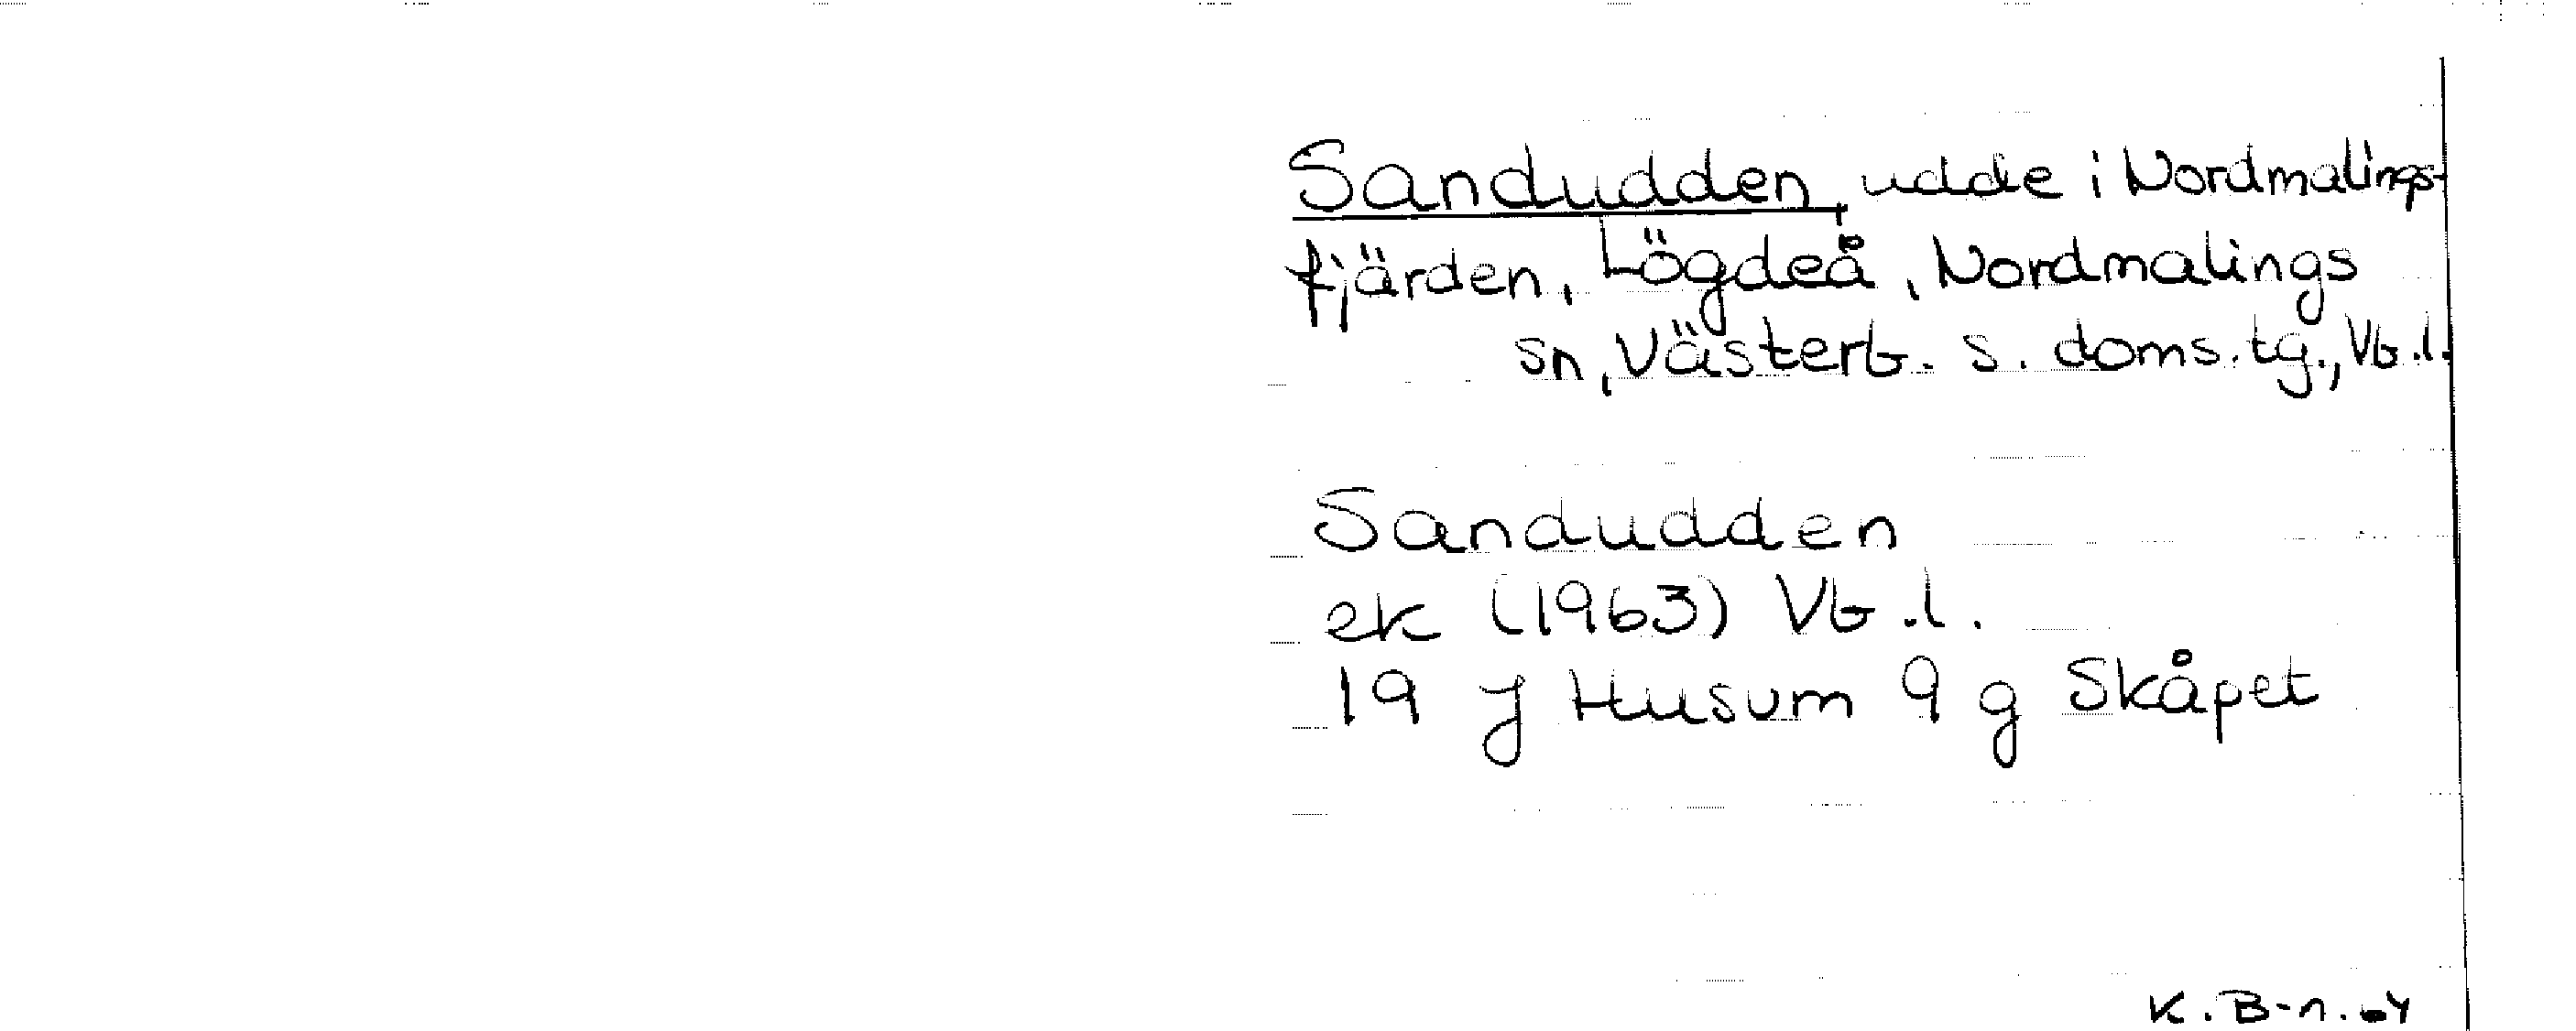 Sandudden, udde i Nordmalings-
fjärden, Lögdeå, Nordmalings
sn, Västerb. s. doms. tg., Vb.l.
Sandudden
ek (1963) Vb.l.
19 J Husum 9 g Skåpet
K. B-n.